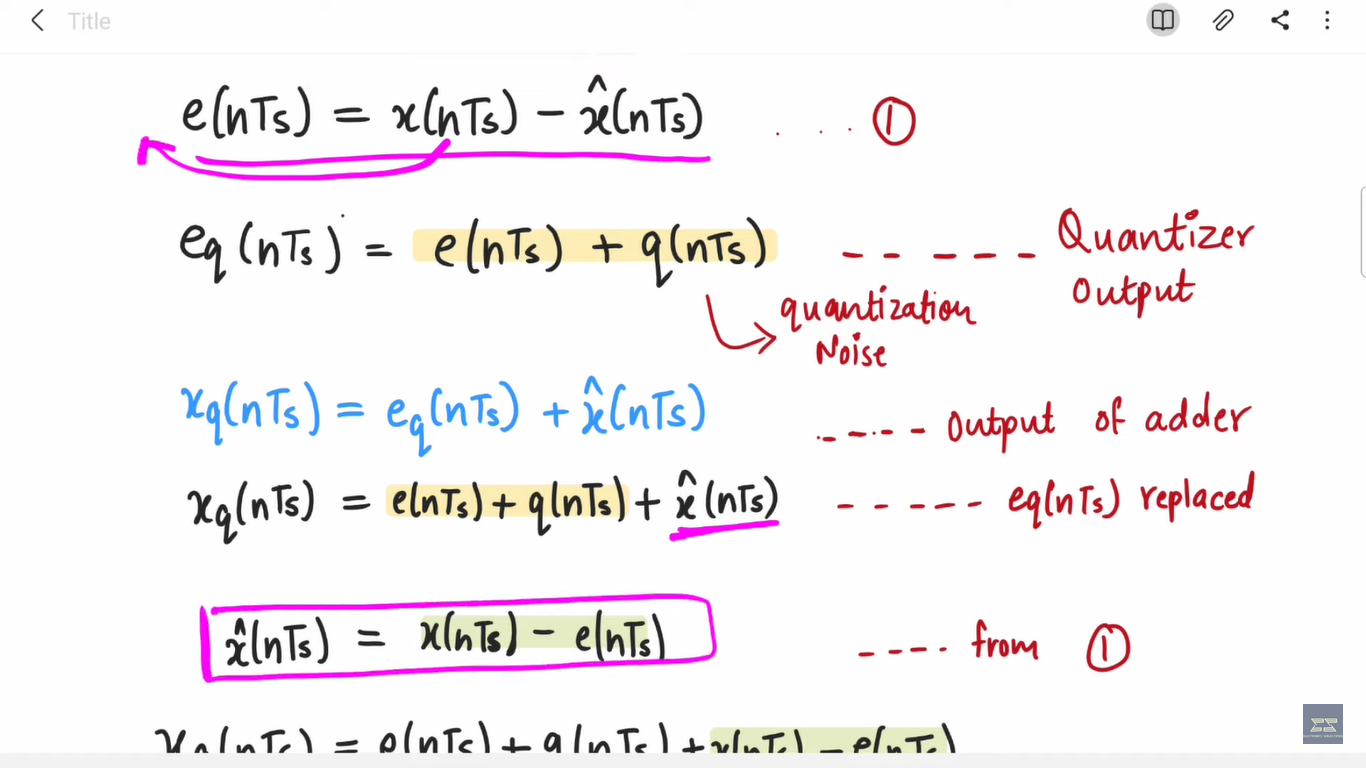 Title
e(nTs) = x(nTs) − x̂(nTs) . . . ①
eq(nTs) = e(nTs) + q(nTs) ------ Quantizer Output
quantization Noise
xq(nTs) = eq(nTs) + x̂(nTs) ..--.-- Output of adder
xq(nTs) = e(nTs) + q(nTs) + x̂(nTs) ------ eq(nTs) replaced
x̂(nTs) = x(nTs) − e(nTs) ---- from ①
xq(nTs) = e(nTs) + q(nTs) + x(nTs) − e(nTs)